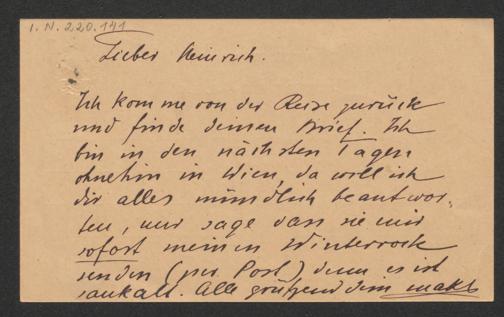 I.N. 220.141
Lieber Heinrich.
Ich komme von der Reise zurück
und finde deinen Brief. Ich
bin in den nächsten Tagen
ohnehin in Wien, da will ich
dir alles mündlich beantwor-
ten, nur sage dass sie mir
sofort meinen Winterrock
senden (per Post), denn es ist
saukalt. Alle grüssend dein